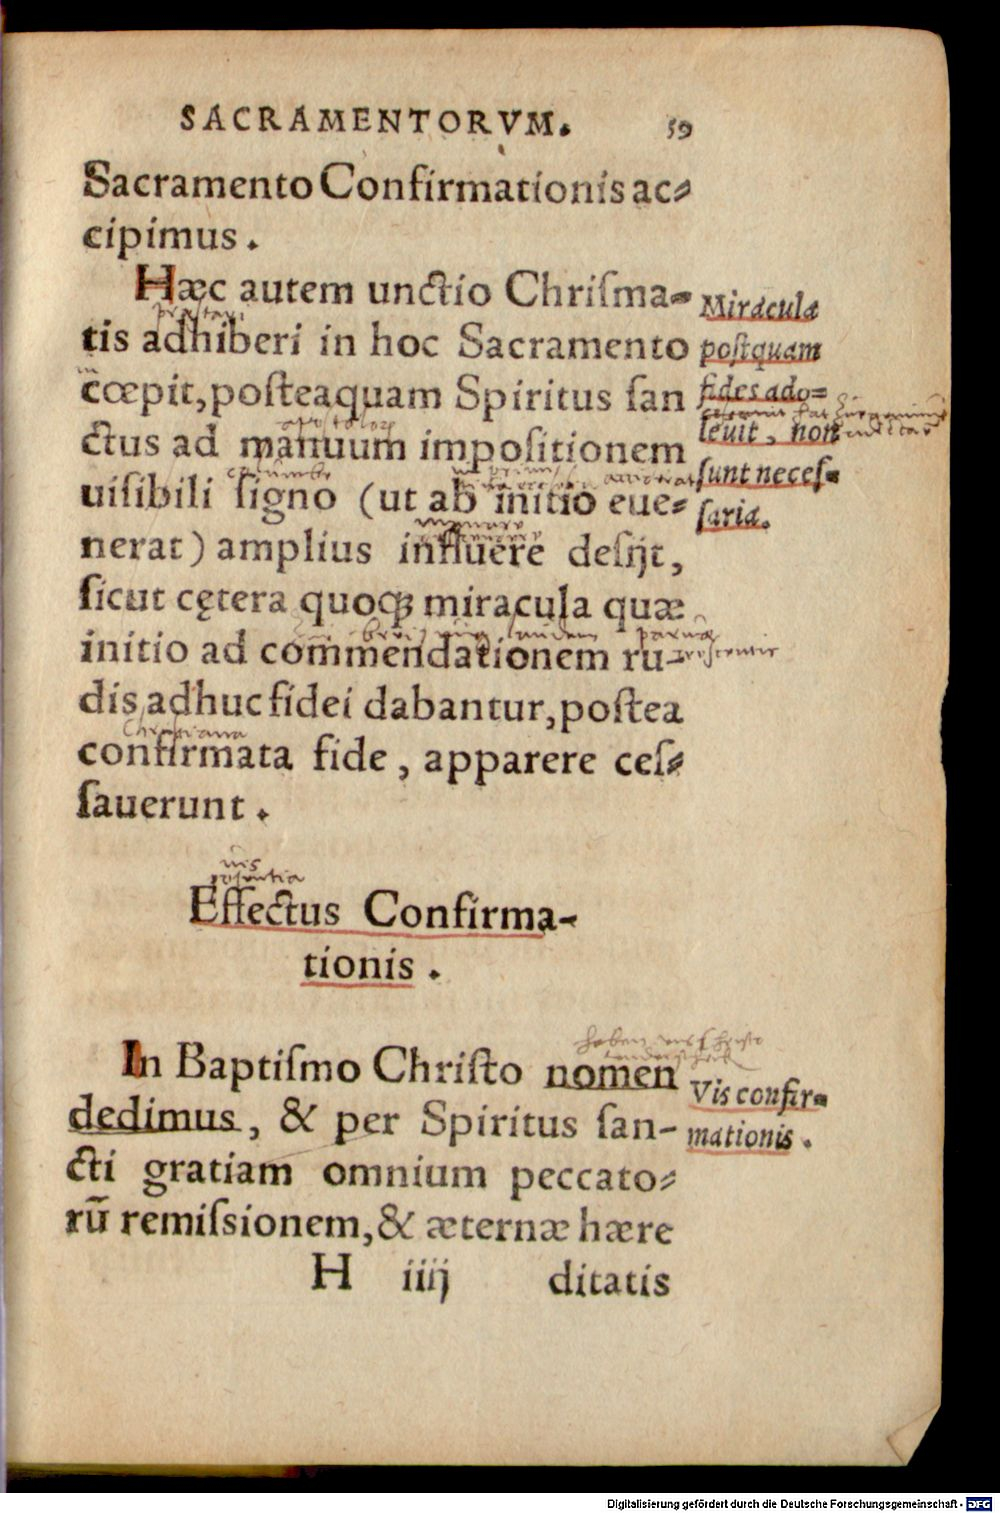 SACRAMENTORVM. 59
Sacramento Confirmationis ac⸗
cipimus.
Hæc autem unctio Chriſma⸗
tis adhiberi in hoc Sacramento
cœpit, poſteaquam Spiritus ſan
ctus ad manuum impoſitionem
uiſibili ſigno (ut ab initio eue⸗
nerat) amplius influere deſijt,
ſicut cętera quoqꝫ miracula quæ
initio ad commendationem ru-
dis adhuc fidei dabantur, poſtea
confirmata fide, apparere ceſ⸗
ſauerunt.
Miracula
poſtquam
fides ado⸗
leuit, non
ſunt neceſ⸗
ſaria.
uis
Effectus Confirma-
tionis.
In Baptiſmo Chriſto nomen
dedimus, & per Spiritus ſan-
cti gratiam omnium peccato⸗
rũ remiſsionem, & æternæ hære
Vis confir⸗
mationis.
H iiij ditatis
Digitalisierung gefördert durch die Deutsche Forschungsgemeinschaft - DFG